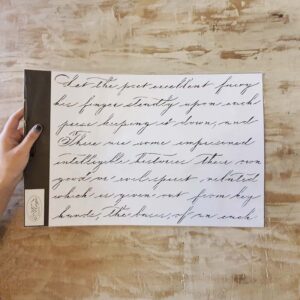 Let the poet excellent fancy
his finger steadily upon each
verse keeping it down, and
There are some unpersoned
intelligible histories their own
good or evil spirit
which is given out from key
hands, the basis, of an each